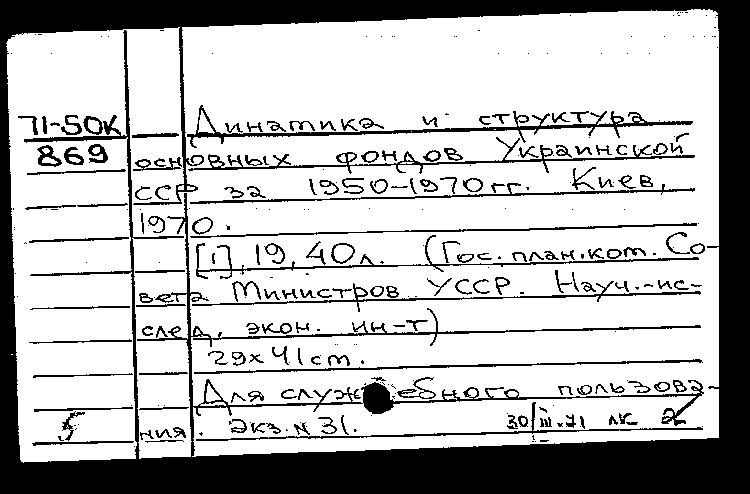 71-50К Динамика и структура
869 основных фондов Украинской
ССР за 1950-1970 гг. Киев,
1970.
[1], 19, 40 л. (Гос. план. ком. Со-
вета Министров УССР. Науч.-ис-
след. экон. ин-т)
29х41 cm.
Для служебного пользова-
5 ния. Экз. N 31. 30/III-71 ЛК 2